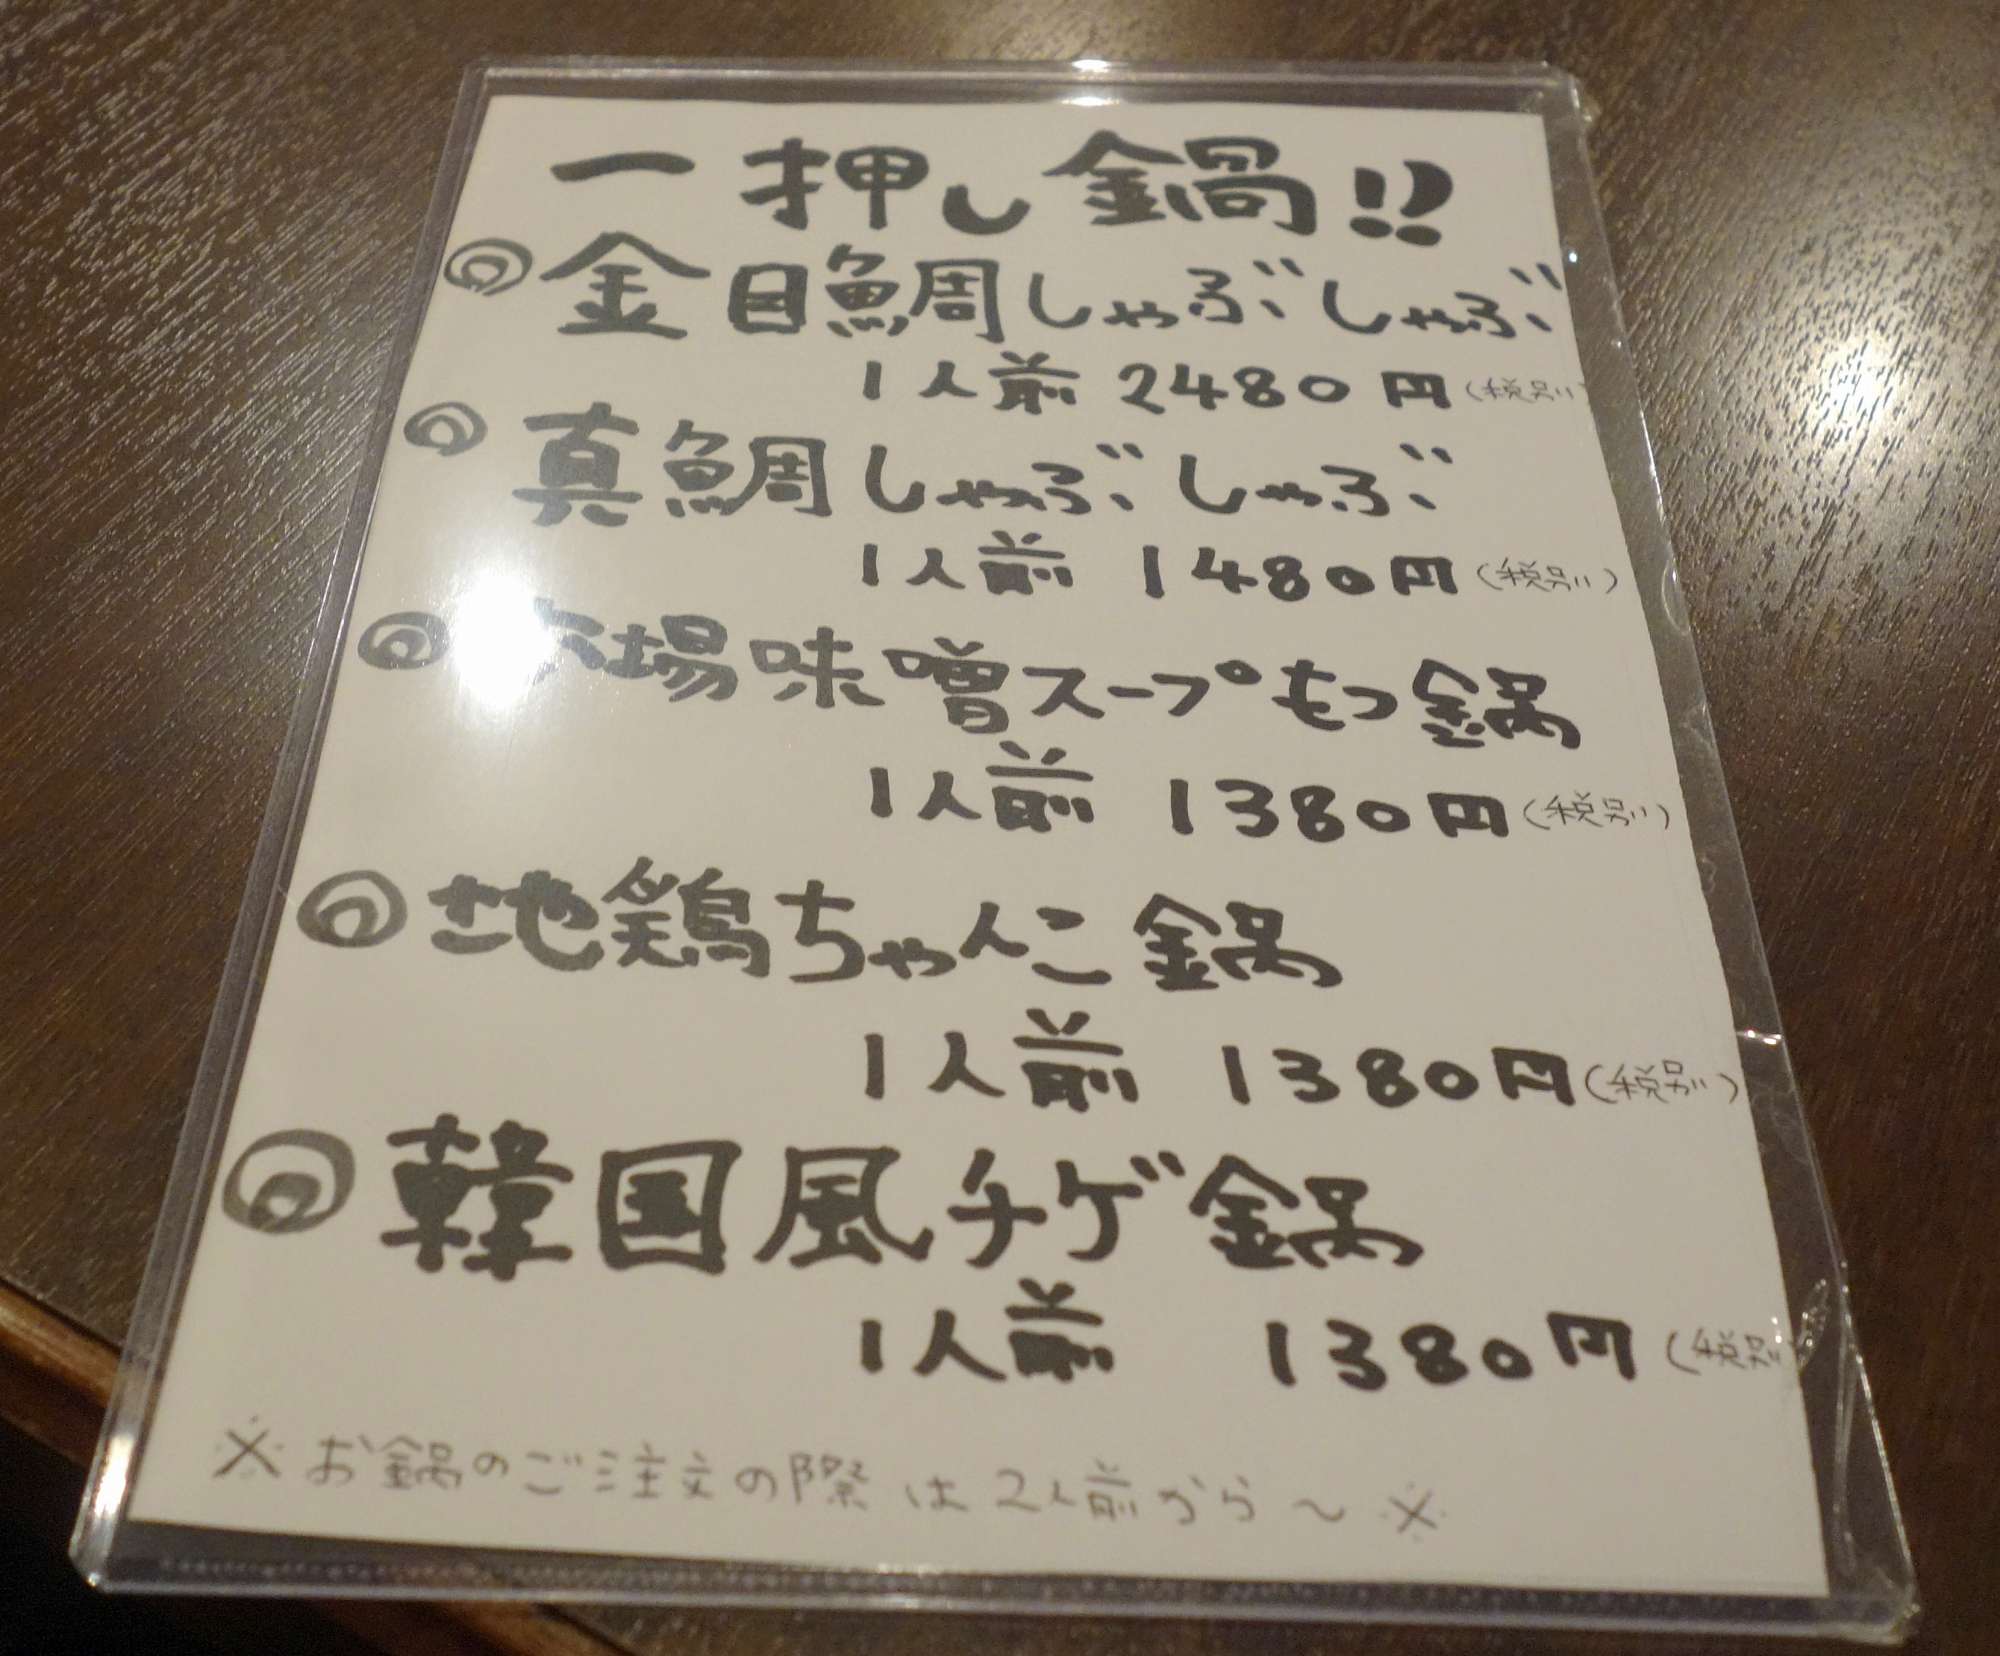 一押し鍋!!
◎金目鯛しゃぶしゃぶ
1人前 2480円(税別)
◎真鯛しゃぶしゃぶ
1人前 1480円(税別)
◎ 場味噌スープもつ鍋
1人前 1380円(税別)
◎地鶏ちゃんこ鍋
1人前 1380円(税別)
◎韓国風チゲ鍋
1人前 1380円(税別)
※お鍋のご注文の際は2人前から〜※